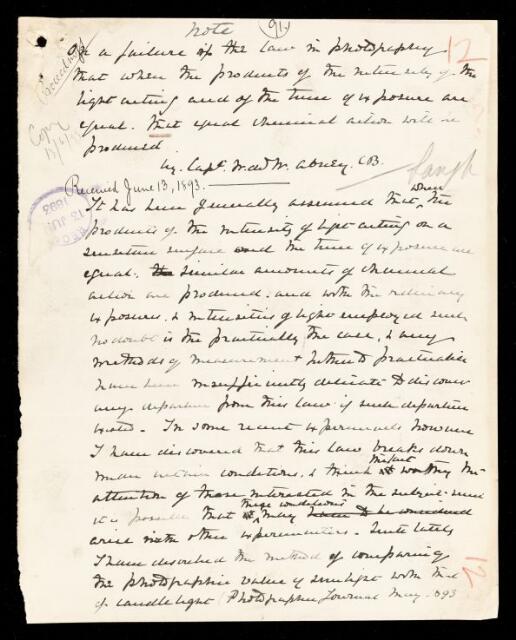 Note
91
On a failure of the law in photography
12
that when the products of the intensity of the
light acting and of the time of exposure are
equal. that equal chemical action will be
produced
by Capt. W. de W. Abney. CB.
Received June 13, 1893.
It has been generally assumed that, when the
products of the intensity of light acting on a
sensitive surface and the time of exposure are
equal. similar amounts of chemical
action are produced. and with the ordinary
exposures, & intensities of light employed such
no doubt is the practically the case, & any
methods of measurement hitherto practicable
have been insufficiently delicate to discover
any departure from this law if such departure
existed. In some recent experiments however
I have discovered that this law breaks down
under certain conditions, & think the
attention of those interested in the subject
it is possible that these conditions may
arise with other experimenters. Quite lately
I have described the method of comparing
the photographic value of sunlight with that
of candlelight (Photographic Journal May. 1893
12